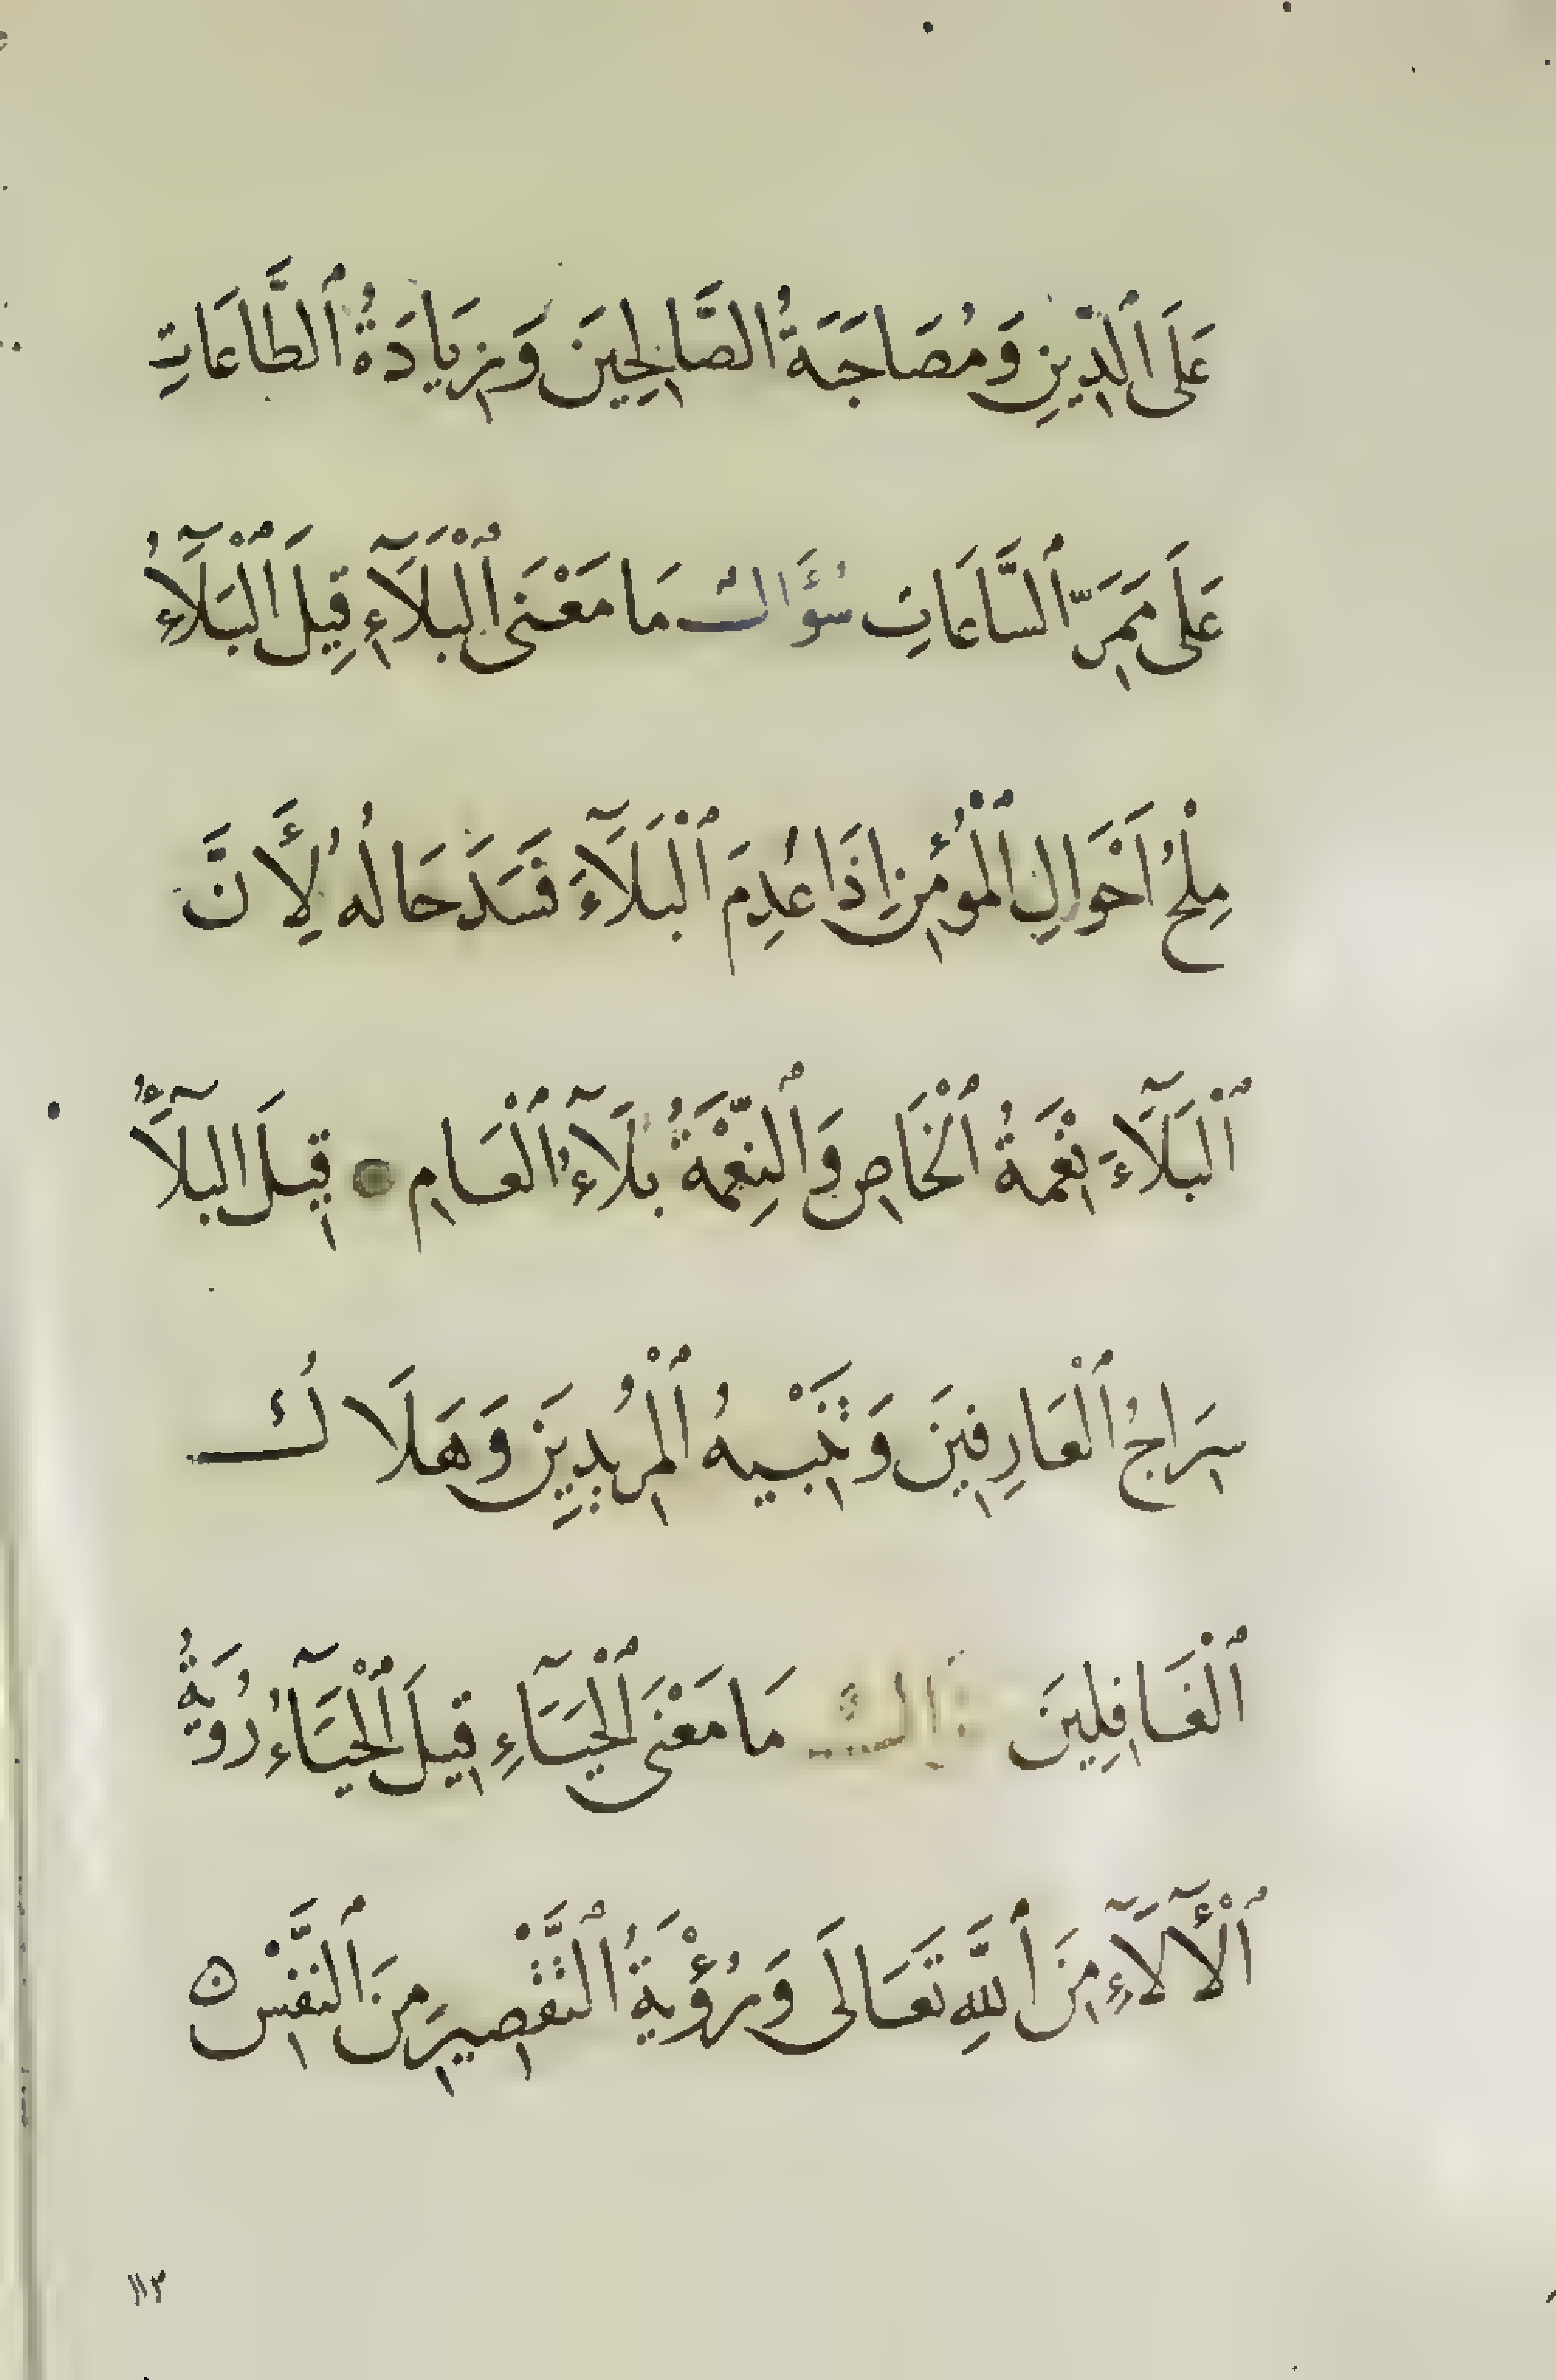 عَلَى ٱلدِّينِ وَمُصَاحَبَةُ الصَّالِحِينَ وَزِيَادَةُ ٱلطَّاعَاتِ
عَلَى مَمَرِّ ٱلسَّاعَاتِ سُؤَال مَا مَعْنَى ٱلْبَلَآءِ قِيلَ ٱلْبَلَآءُ
مِلْحُ أَحْوَالِ ٱلْمُؤْمِنِ إِذَا عُدِمَ ٱلْبَلَآءَ فَسَدَ حَالُهُ لِأَنَّ
ٱلْبَلَآءَ نِعْمَةُ ٱلْخَاصِ وَٱلنِّعْمَةُ بَلَآءُ ٱلْعَامِ قِيلَ البَلَآءُ
سِرَاجُ ٱلْعَارِفِينَ وَتَنْبِيهُ ٱلْمُرِيدِينَ وَهَلَاكُ
ٱلْغَافِلِينَ مَا مَعْنَى ٱلْحَيَآءِ قِيلَ ٱلْحَيَآءُ رُؤيَةُ
ٱلْآلَآءِ مِنَ ٱللَّهِ تَعَالَى وَرُؤْيَةُ ٱلتَّقْصِيرِ مِنَ ٱلنَّفْسِ
١١٢